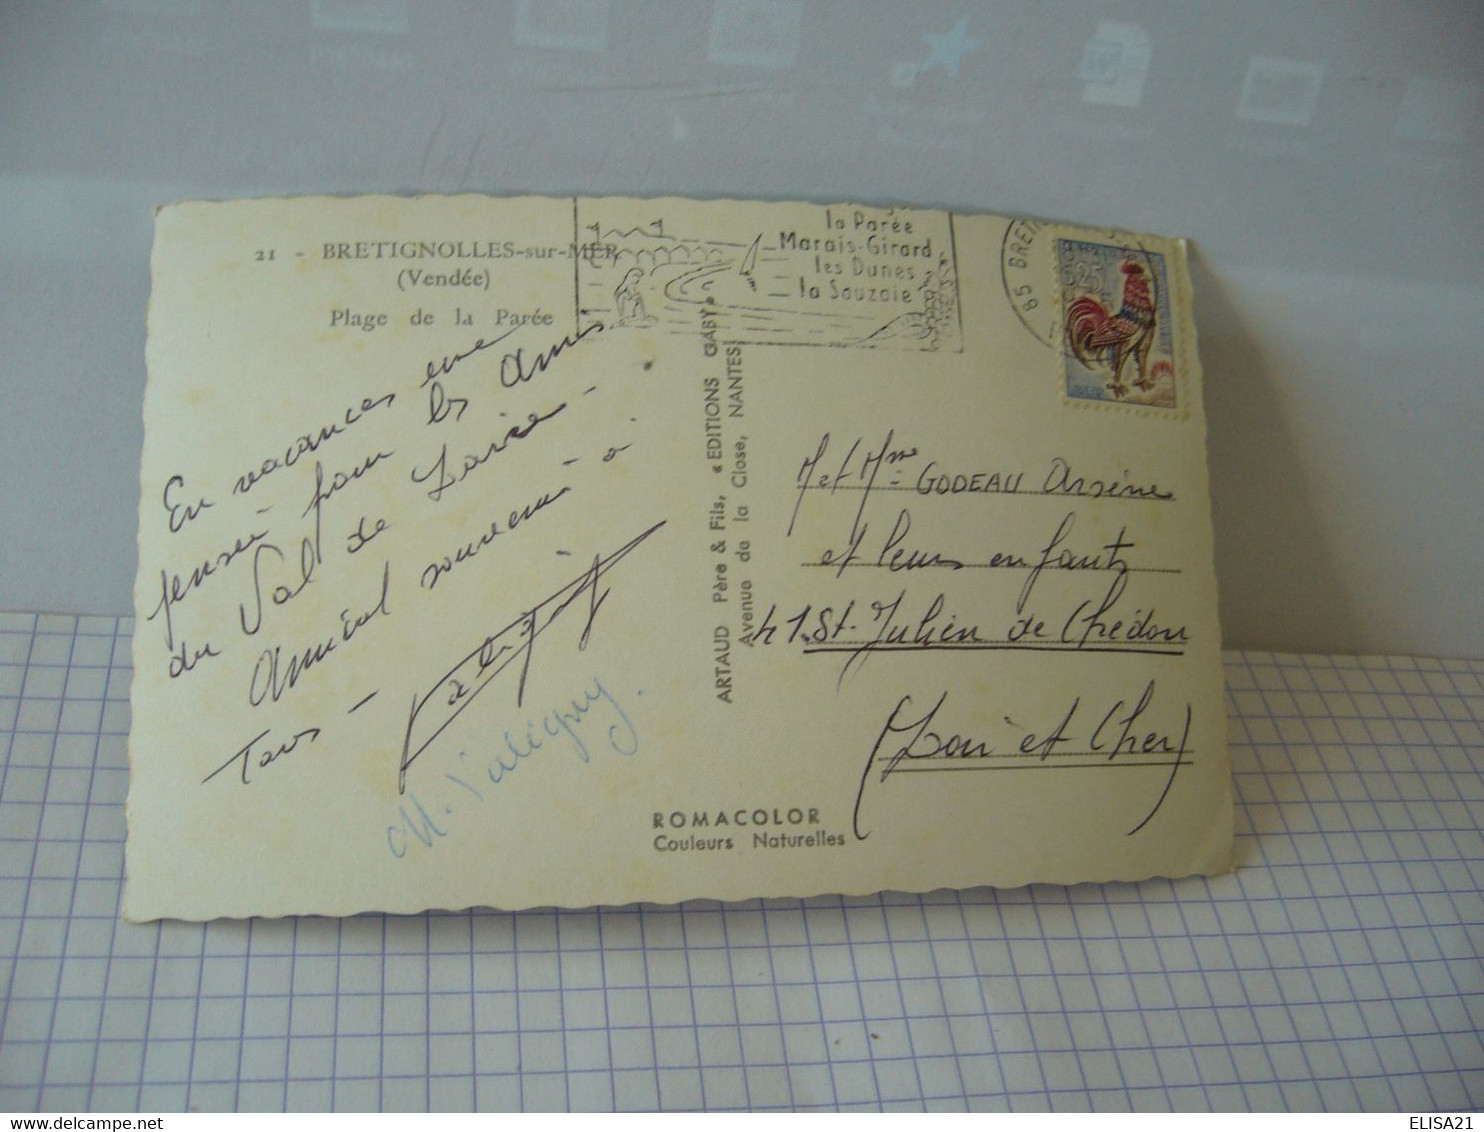 21 - BRETIGNOLLES-sur-MER
(Vendée)
Plage de la Parée
la Parée
Marais-Girard
les Dunes
la Sauzaie
85 BRET
0,25
En vacances une
pensée pour les amis
du Val de Loire -
Amical souvenir à
Tous -
M. Valigny.
ARTAUD Père & Fils, « EDITIONS GABY »
Avenue de la Close, NANTES
M et Mme GODEAU Arsène
et leurs enfants
41. St-Julien de Chédon
(Loir et Cher)
ROMACOLOR
Couleurs Naturelles
ELISA21